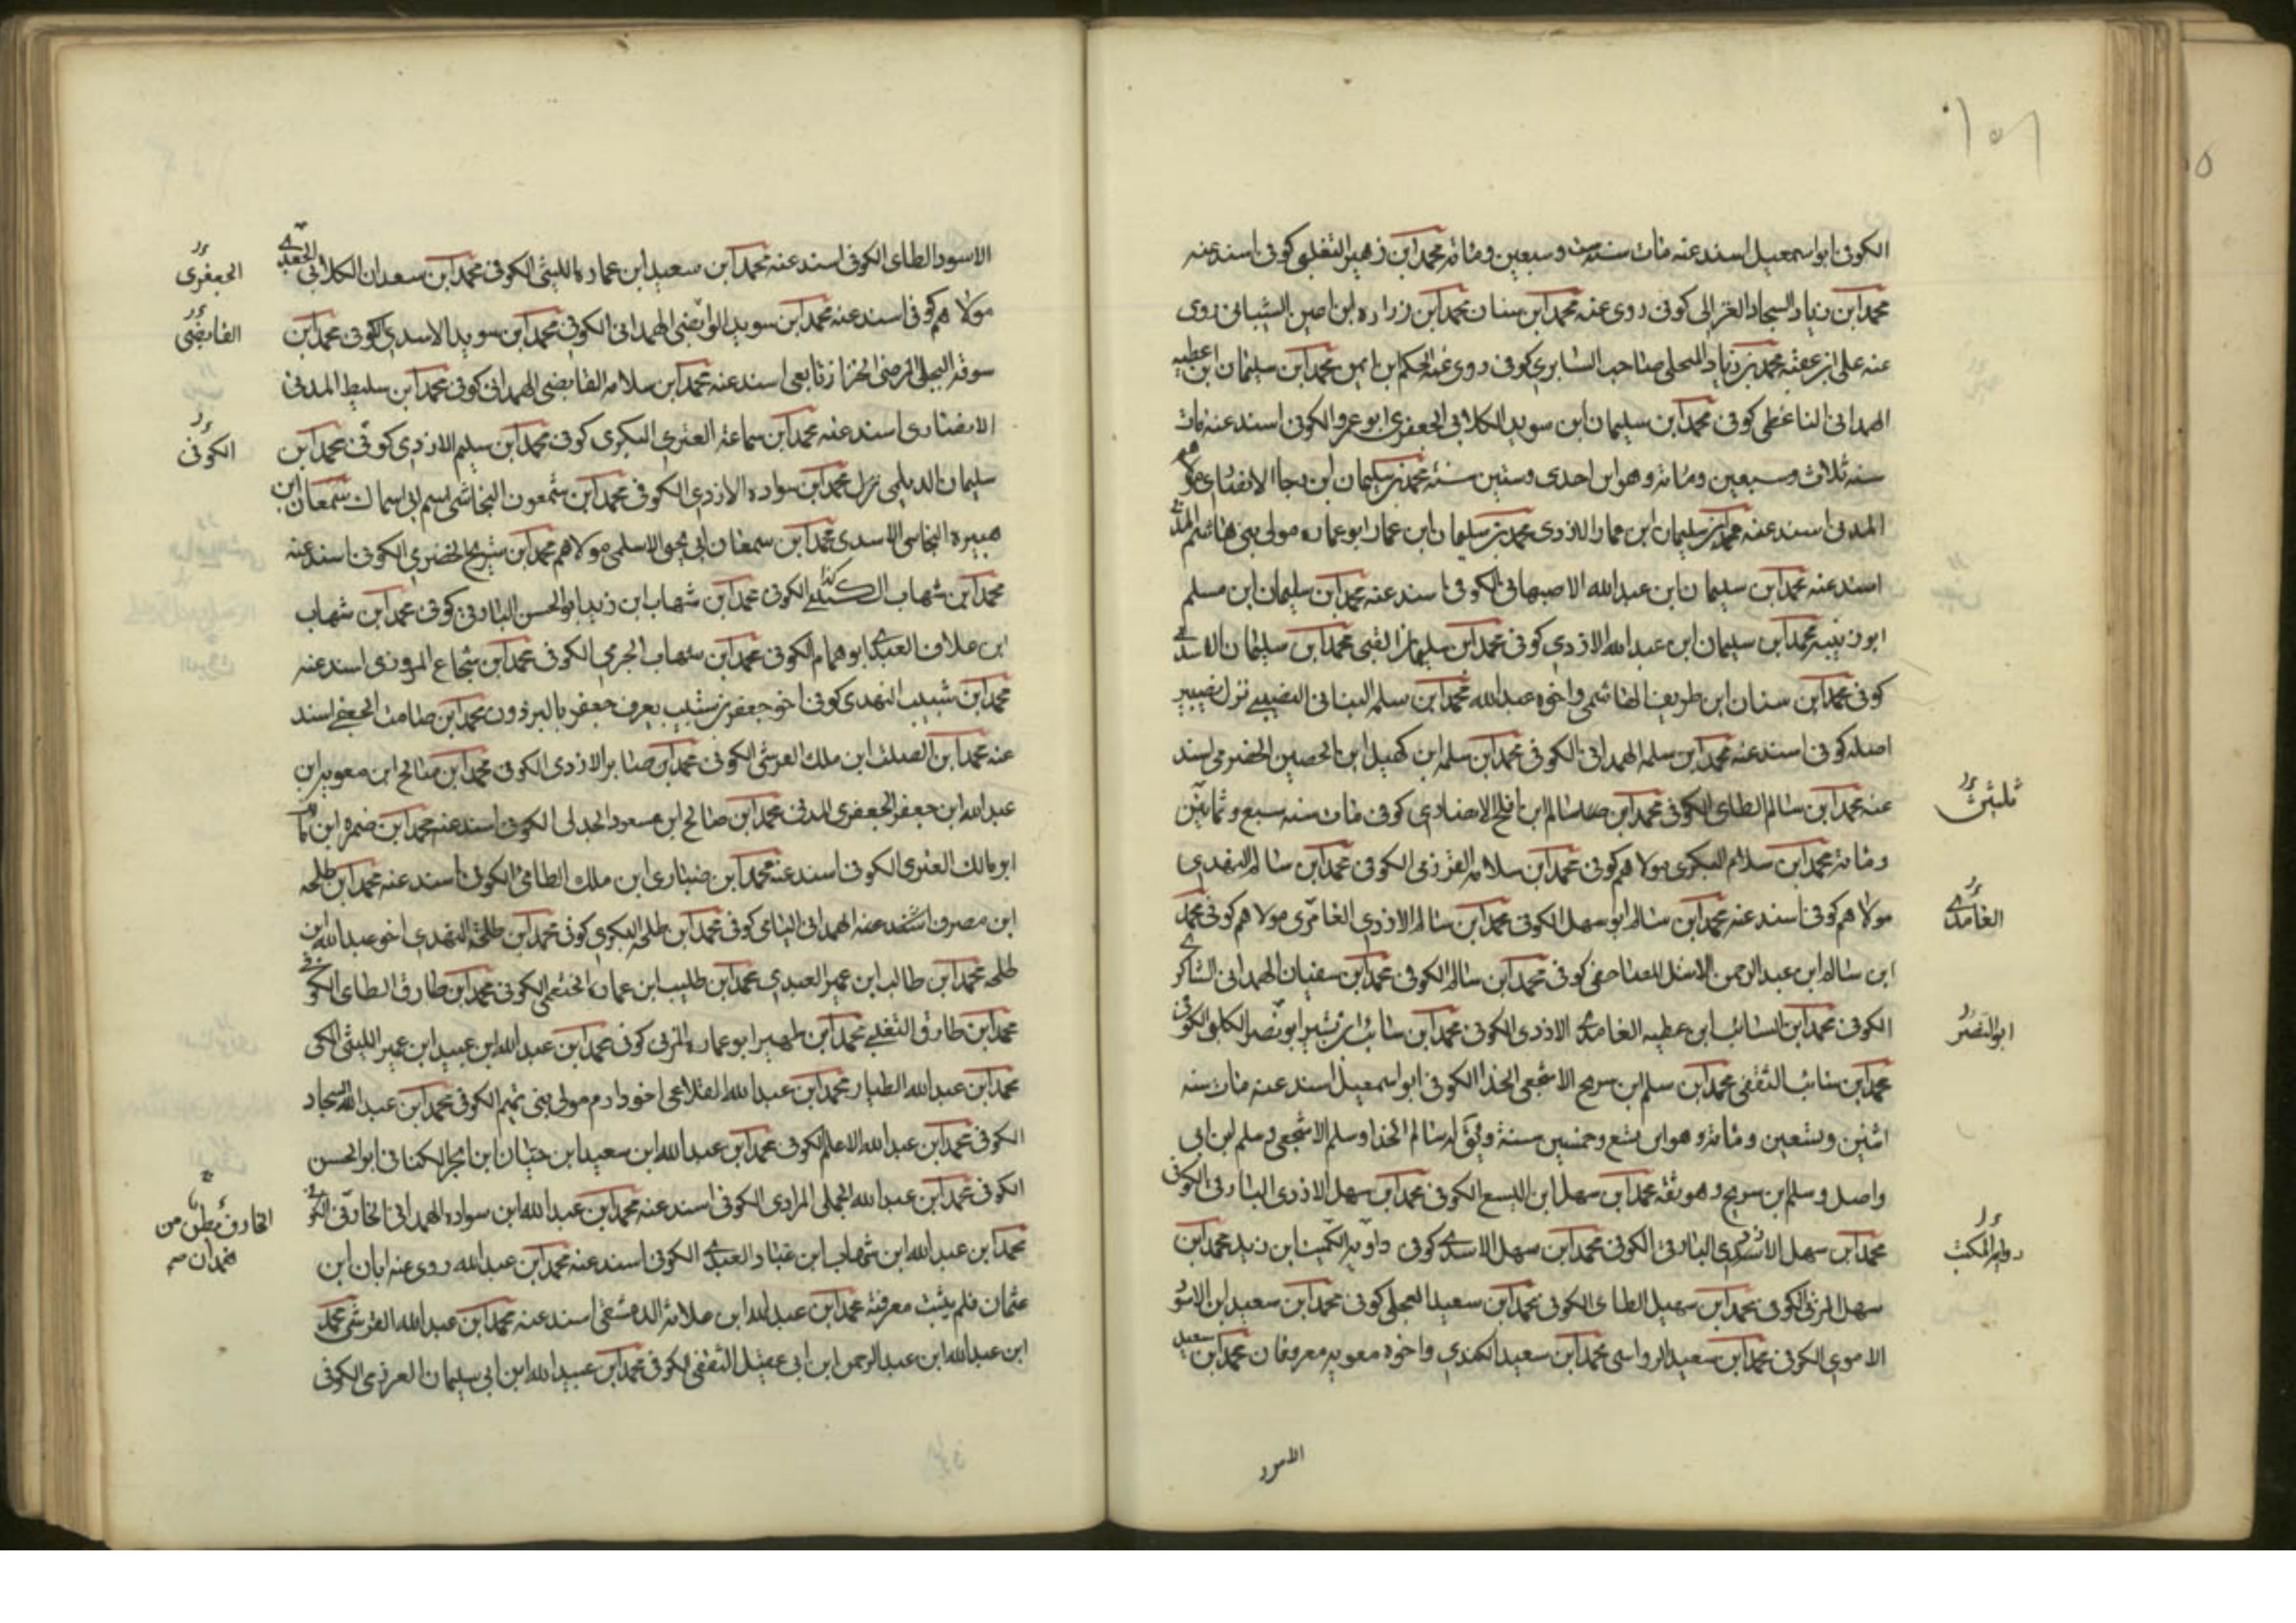 ١٥٦
الكوفى ابو اسمعيل اسند عنه مات سنة ست وسبعين ومائة محمد ابن زهير التغلبى كوفى اسند عنه
محمد ابن زياد السجاد الغزالى كوفى روى عنه محمد ابن سنان محمد ابن زراره ابن اعين الشيبانى روى
عنه على ابن عقبة محمد بن زياد البجلى صاحب السابرى كوفى روى عنه الحكم بن ايمن محمد ابن سليمان ابن عطيه
الهمدانى الناعطى كوفى محمد ابن سليمان ابن سويد الكلابى الجعفرى ابو عمرو الكوفى اسند عنه مات
سنه ثلاث وسبعين ومائة وهو ابن احدى وستين سنة محمد بن سليمان ابن رجا الانصارى مولاهم
المدنى اسند عنه محمد بن سليمان ابن عمار الازدى محمد بن سليمان ابن عمار ابو عماره مولى بنى هاشم المدنى
اسند عنه محمد ابن سليمان ابن عبدالله الاصبهانى الكوفى اسند عنه محمد ابن سليمان ابن مسلم
ابو زينبه محمد ابن سليمان ابن عبدالله الازدى كوفى محمد ابن سليمان القبى محمد ابن سليمان الاسدى
كوفى محمد ابن سنان ابن طريف الهاشمى واخوه عبدالله محمد ابن سلمه البنانى النصيبى نزل نصيبين
اصله كوفى اسند عنه محمد ابن سلمه الهمدانى الكوفى محمد ابن سلمه ابن كهيل ابن الحصين الحضرمى اسند
عنه محمد ابن سالم الطاى الكوفى محمد ابن سالم ابن افلح الانصارى كوفى مات سنه سبع وثمانين
ومائة محمد ابن سلام البكرى مولاهم كوفى محمد ابن سلامه الفزرمى الكوفى محمد ابن سالم النهدى
مولاهم كوفى اسند عنه محمد ابن سالم ابو سهل الكوفى محمد ابن سالم الازدى الغامرى مولاهم كوفى محمد
ابن سالم ابن عبدالرحمن الاشل المصاحفى كوفى محمد ابن سالم الكوفى محمد ابن سفيان الهمدانى الشاكرى
الكوفى محمد ابن السائب ابن عطيه الغامدى الازدى الكوفى محمد ابن سائب ابن بشير ابو نصر الكلبى الكوفى
محمد ابن سائب الثقفى محمد ابن سلم ابن سريح الاشجعى الحذا الكوفى ابو اسمعيل اسند عنه مات سنه
اثنين وتسعين ومائة وهو ابن تسع وخمسين سنة وليق له سالم الحذا وسلم الاشجعى وسلم ابن ابى
واصل وسلم ابن سريح وهو ثقه محمد ابن سهل ابن اليسع الكوفى محمد ابن سهل الازدى البارقى الكوفى
محمد ابن سهل الاسدى البارقى الكوفى محمد ابن سهل الاسدى كوفى راويه الكميت ابن زيد محمد ابن
سهل المزنى الكوفى محمد ابن سهيل الطاى الكوفى محمد ابن سعيد البجلى كوفى محمد ابن سعيد ابن الاسود
الاموى الكوفى محمد ابن سعيد الرواسى محمد ابن سعيد الكندى واخوه معويه معروفان محمد ابن سعيد
ثلثين
الغامدى
ابو النصر
راويه الكميت
الاسود
الاسود الطاى الكوفى اسند عنه محمد ابن سعيد ابن عماره الليثى الكوفى محمد ابن سعدان الكلابى الجعدى
مولاهم كوفى اسند عنه محمد ابن سويد الوابضى الهمدانى الكوفى محمد ابن سويد الاسدى الكوفى محمد ابن
سوقه البجلى المرضى الخزاز تابعى اسند عنه محمد ابن سلامه القابضى الهمدانى كوفى محمد ابن سليط المدنى
الانصارى اسند عنه محمد ابن سماعة العنزى البكرى كوفى محمد ابن سليم الازدى كوفى محمد ابن
سليمان الديلمى نزل محمد ابن سواده الازدى الكوفى محمد ابن شمعون النجاشى اسم ابى اسماك سمعان ابن
هبيره النجاسى الاسدى محمد ابن سمعان ابى يحيى الاسلمى مولاهم محمد ابن شريح الحضرمى الكوفى اسند عنه
محمد ابن شهاب الكوفى محمد ابن شهاب ابن زيد ابو الحسن البارقى كوفى محمد ابن شهاب
ابن علاق العبدى ابو همام الكوفى محمد ابن شهاب الجرمى الكوفى محمد ابن شجاع المروزى اسند عنه
محمد ابن شبيب النهدى كوفى اخو جعفر بن شبيب يعرف جعفر بالبرذون محمد ابن صامت الجعفى اسند
عنه محمد ابن الصلت ابن ملك القرشى الكوفى محمد ابن صابر الازدى الكوفى محمد ابن صالح ابن معويه ابن
عبدالله ابن جعفر الجعفرى المدنى محمد ابن صالح ابن مسعود الجدلى الكوفى اسند عنه محمد ابن ضمره ابن مالك
ابو مالك العنزى الكوفى اسند عنه محمد ابن ضبارى ابن ملك الطامى الكوفى اسند عنه محمد ابن طلحه
ابن مصرف اسند عنه الهمدانى اليامى كوفى محمد ابن طلحه البكرى كوفى محمد ابن طلحة النهدى اخو عبدالله ابن
طلحه محمد ابن طالب ابن عمير العبدى محمد ابن طليب ابن عماره الخثعمى الكوفى محمد ابن طارق الطاى الكوفى
محمد ابن طارق التغلبى محمد ابن ظهير ابو عماره المزنى كوفى محمد ابن عبدالله ابن عبيد ابن عمير الليثى المكى
محمد ابن عبدالله الطيار محمد ابن عبدالله القلاعى اخو دارم مولى بنى تميم الكوفى محمد ابن عبدالله السجاد
الكوفى محمد ابن عبدالله الاعلم الكوفى محمد ابن عبدالله ابن سعيد ابن حيان ابن ابجر الكنانى ابو الحسن
الكوفى محمد ابن عبدالله الجملى المرادى الكوفى اسند عنه محمد ابن عبدالله ابن سواده الهمدانى الخارفى الكوفى
محمد ابن عبدالله ابن شهاب ابن عباد العبدى الكوفى اسند عنه محمد ابن عبدالله روى عنه ابان ابن
عثمان فلم يثبت معرفته محمد ابن عبدالله ابن علاثه الدمشقى اسند عنه محمد ابن عبدالله القرشى محمد
ابن عبدالله ابن عبدالرحمن ابن ابى عقيل الثقفى الكوفى محمد ابن عبيدالله ابن ابى سليمان العرزمى الكوفى
الجعفرى
القابضى
الكوفى
الخارف بطن من
همدان صح